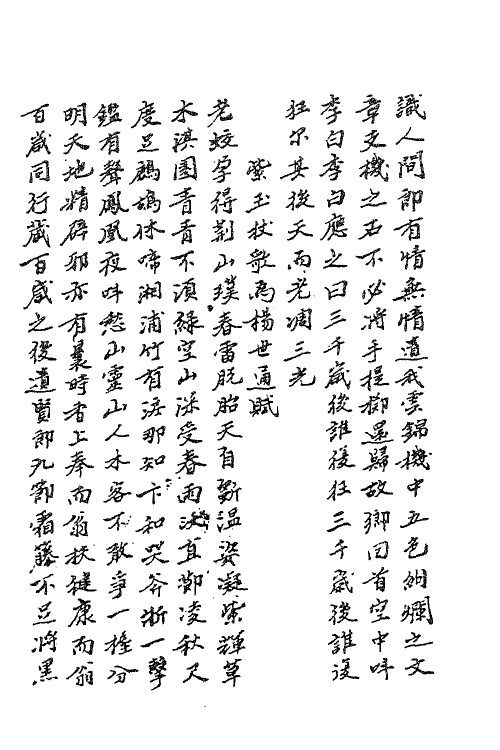 識人間卽有情無情遺我雲錦機中五色絢爛之文
章支機之石不必將手提擲還歸故鄉回首空中呼
李白李白應之曰三千歲後誰後狂三千歲後誰復
狂尔其後天而老凋三光
紫玉杖歌爲楊世通賦
老蛟孕得荆山璞春雷脫胎天自斲温姿凝紫輝草
木淇園青青不湏綠空山深受春雨沃直節凌秋尺
度足鷓鴣休啼湘浦竹有淚那知卞和哭斧斨一擊
鑑有聲鳳凰夜呌愁山靈山人木客不敢爭一權分
明天地精辟邪亦有曩時香上奉而翁扶健康而翁
百歲同行藏百歲之後遺賢郎九節霜藤不足將黑